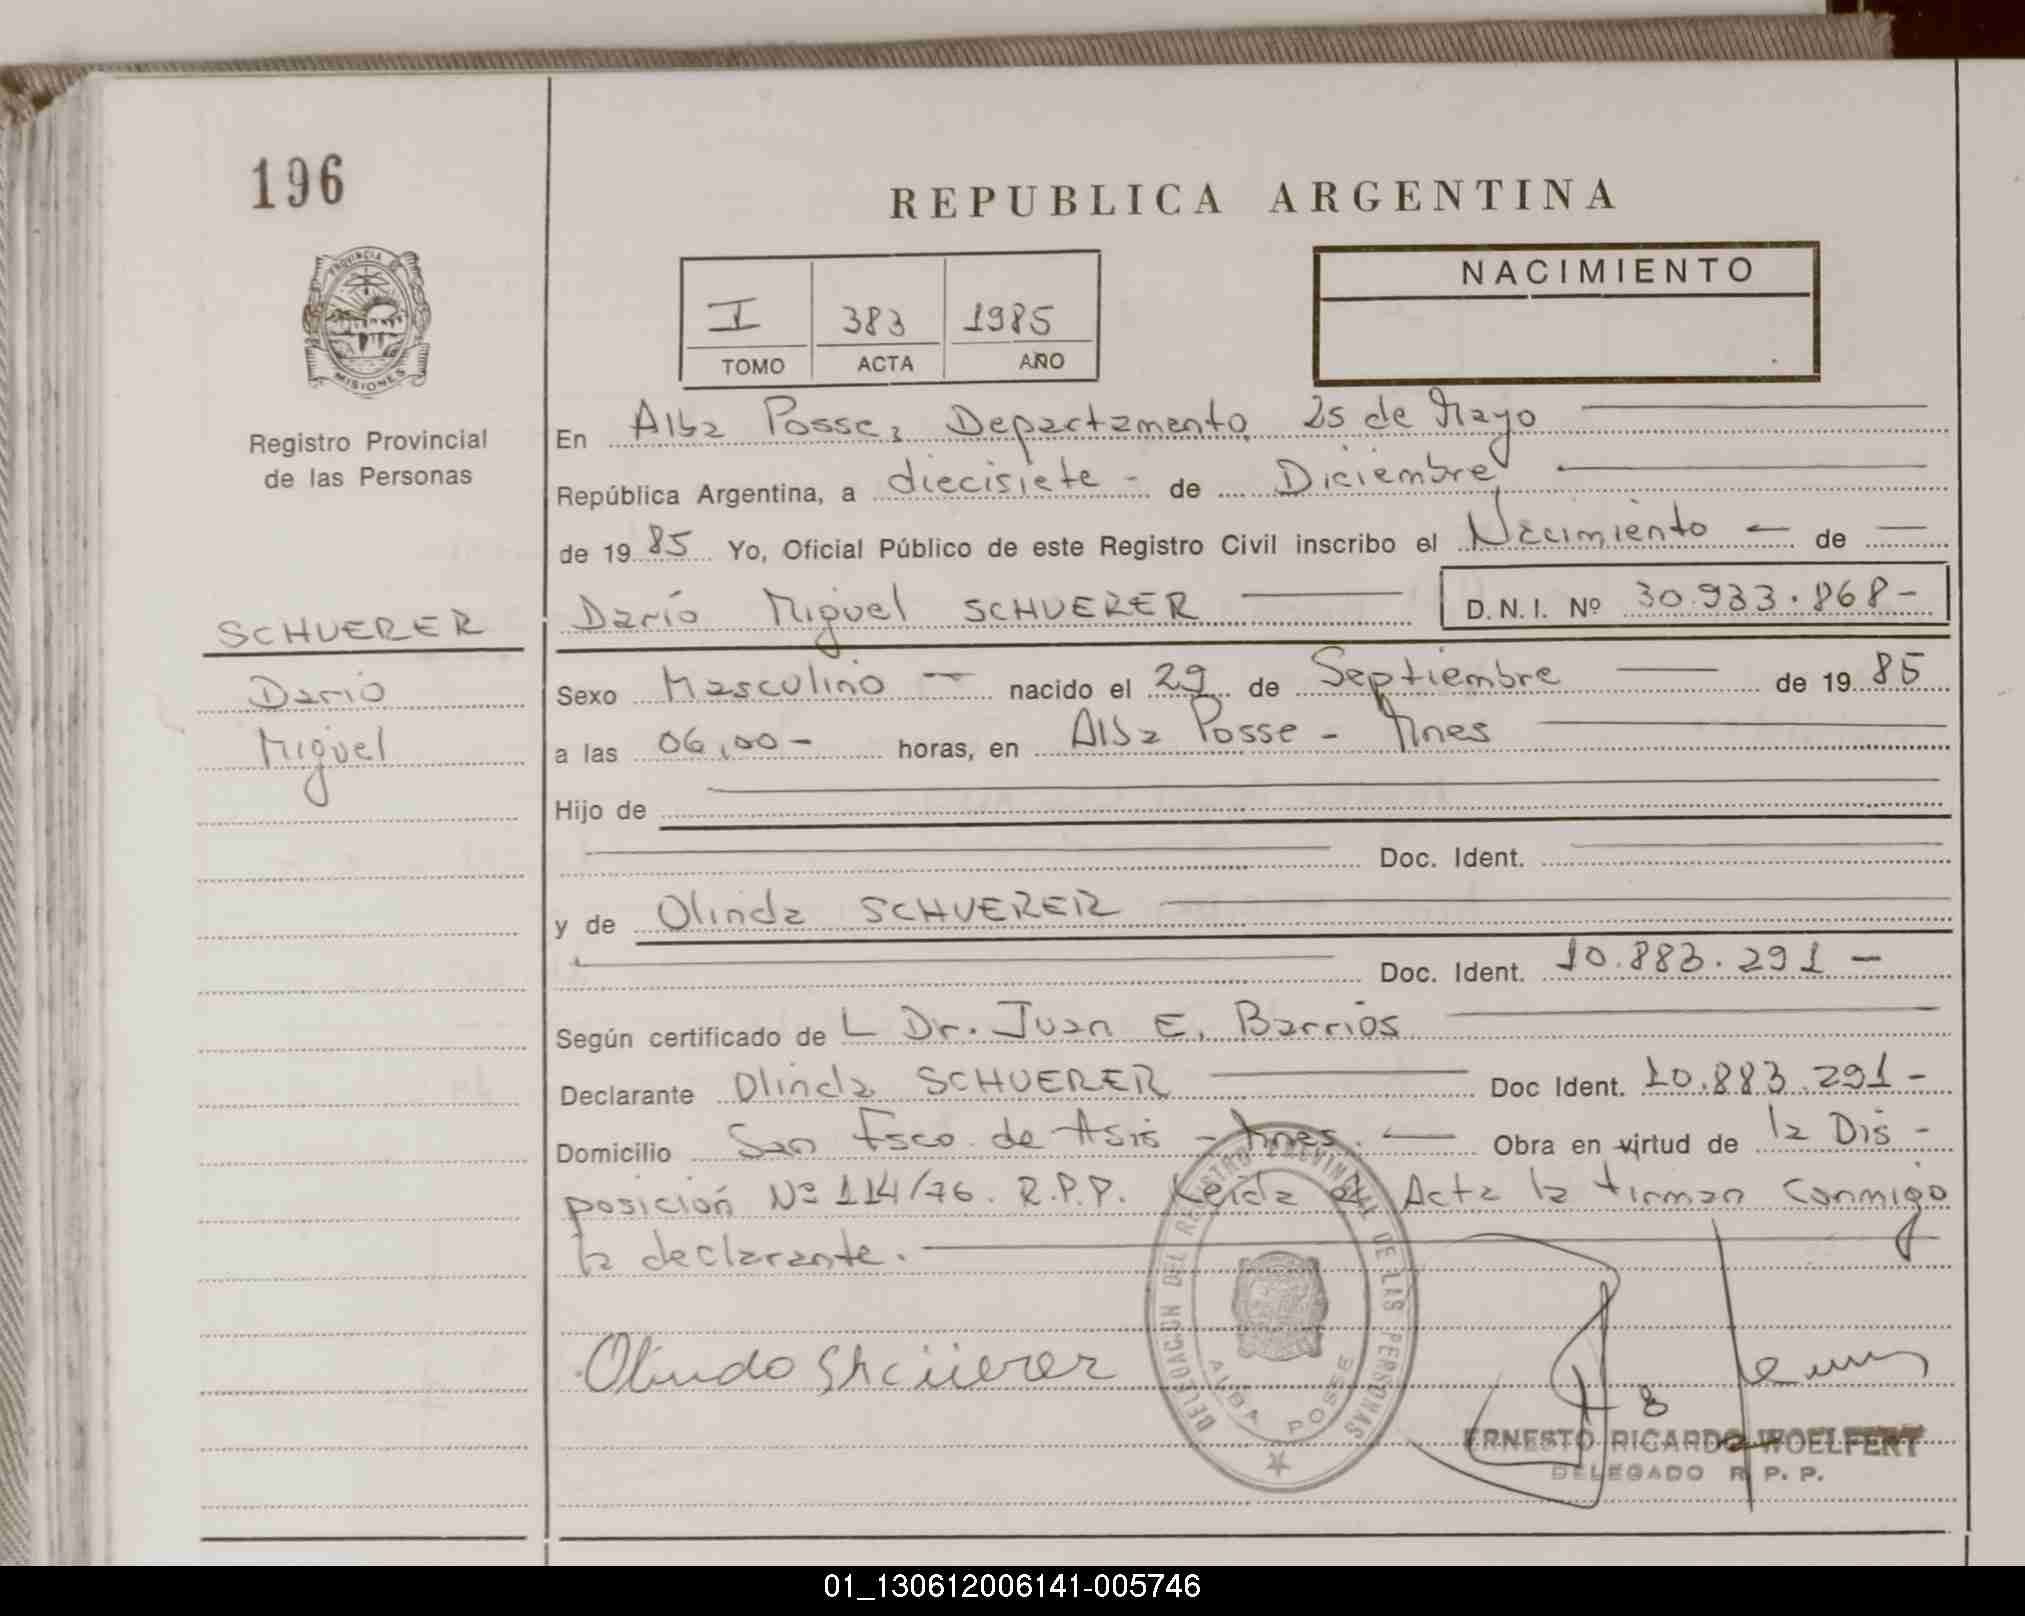 196
REPUBLICA ARGENTINA
NACIMIENTO
I 383 1985
TOMO ACTA AÑO
PROVINCIA DE
MISIONES
Registro Provincial
de las Personas
En Alba Posse, Departamento 25 de Mayo
República Argentina, a diecisiete - de Diciembre
de 1985 Yo, Oficial Público de este Registro Civil inscribo el Nacimiento - de
Darío Miguel SCHUERER D.N.I. Nº 30.933.868-
SCHUERER
Dario
Miguel
Sexo Masculino - nacido el 29 de Septiembre de 1985
a las 06,00 - horas, en Alba Posse - Mnes
Hijo de
Doc. Ident.
y de Olinda SCHUERER
Doc. Ident. 10.883.291 -
Según certificado de L Dr. Juan E. Barrios
Declarante Olinda SCHUERER Doc Ident. 10.883.291 -
Domicilio San Fsco. de Asis - Mnes. Obra en virtud de la Dis -
posición Nº 114/76. R.P.P. Leida el Acta la firman conmigo
la declarante.
DELEGACION DEL REGISTRO PROVINCIAL DE LAS PERSONAS
ALBA POSSE
ERNESTO RICARDO WOELFERT
DELEGADO R. P. P.
01_130612006141-005746